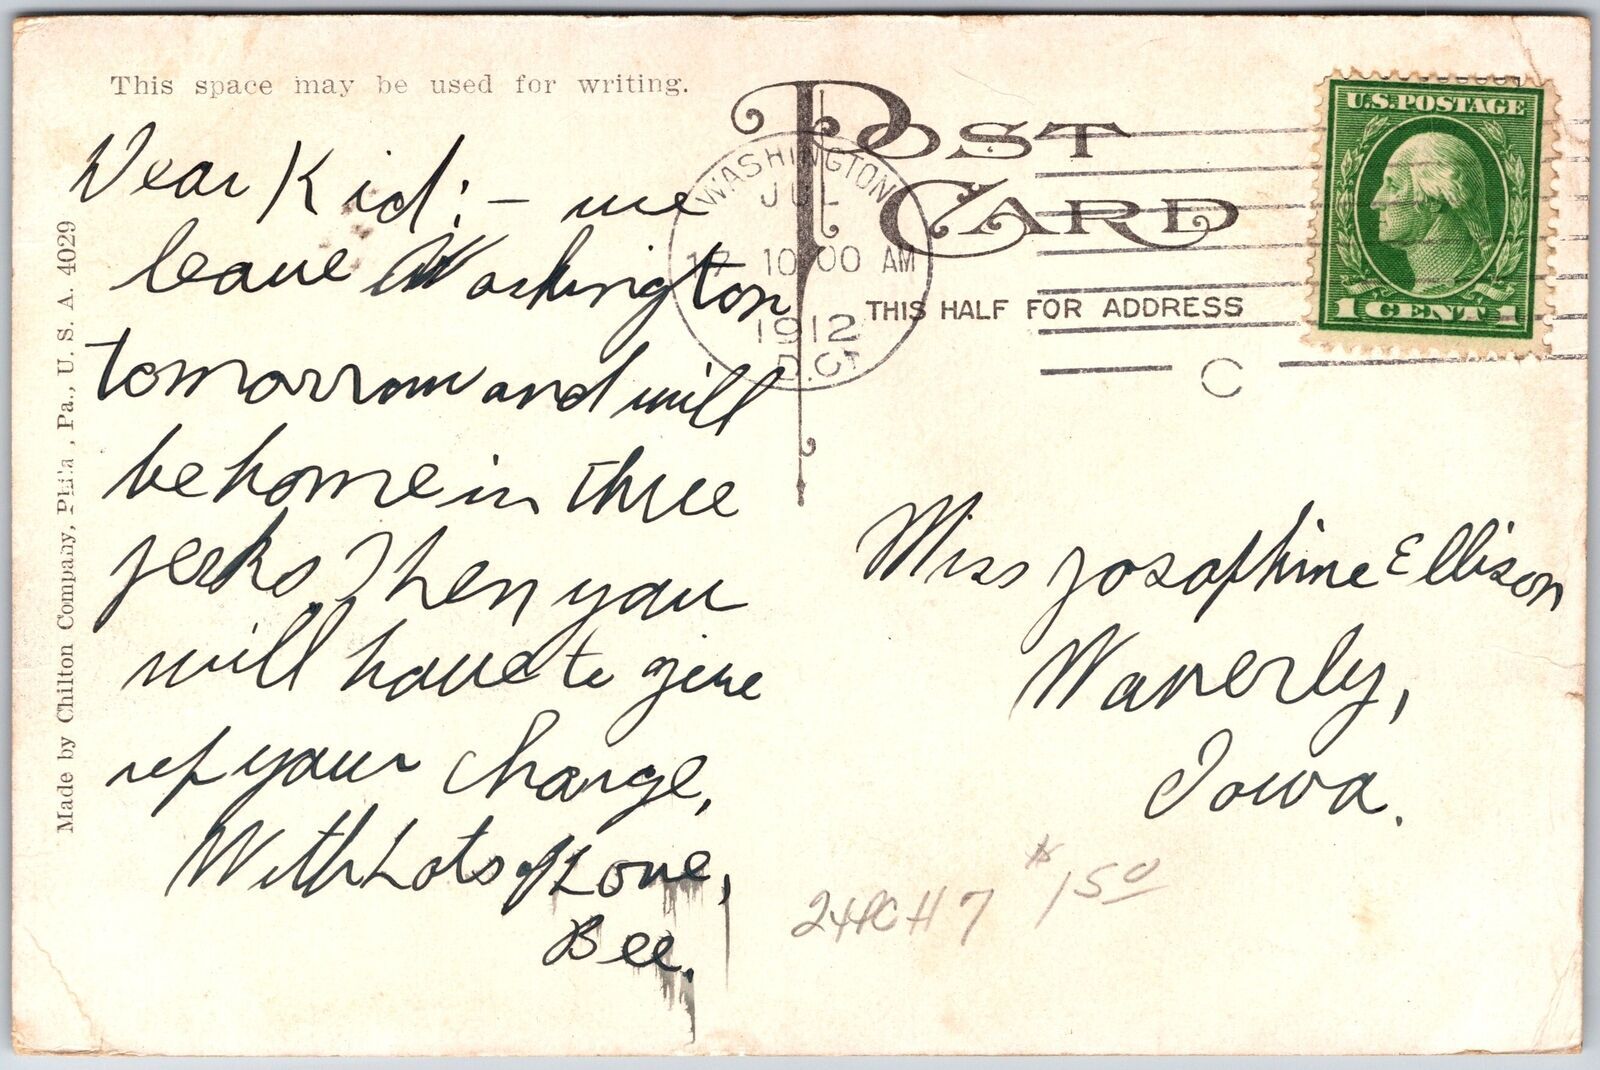 This space may be used for writing.
Dear Kid:- we
leave Washington
tomorrow and will
be home in three
jerks. Then you
will have to give
up your charge,
With Lots of Love,
Bee.
Made by Chilton Company, Phila., Pa., U. S. A. 4029
POST
CARD
THIS HALF FOR ADDRESS
WASHINGTON
JUL
10 00 AM
1912
D.C.
C
U.S. POSTAGE
1 CENT 1
Miss Josaphine Ellison
Waverly,
Iowa.
24PCH7 $1.50